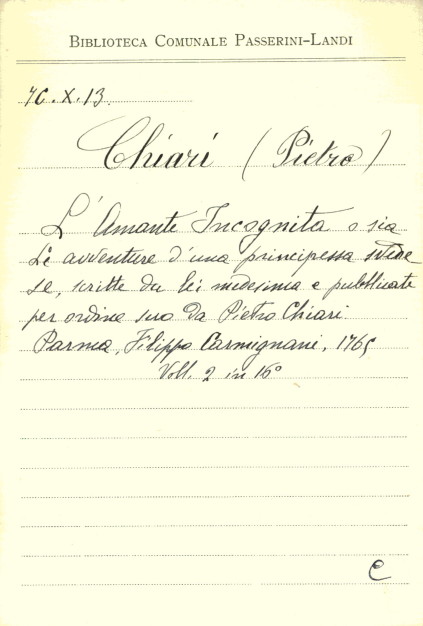 BIBLIOTECA COMUNALE PASSERINI-LANDI
7C.X.13.
Chiari (Pietro)
L'Amante Incognita o sia
Le avventure d'una principessa svede
se, scritte da lei medesima e pubblicate
per ordine suo da Pietro Chiari
Parma, Filippo Carmignani, 1765
Voll. 2 in 16°
C